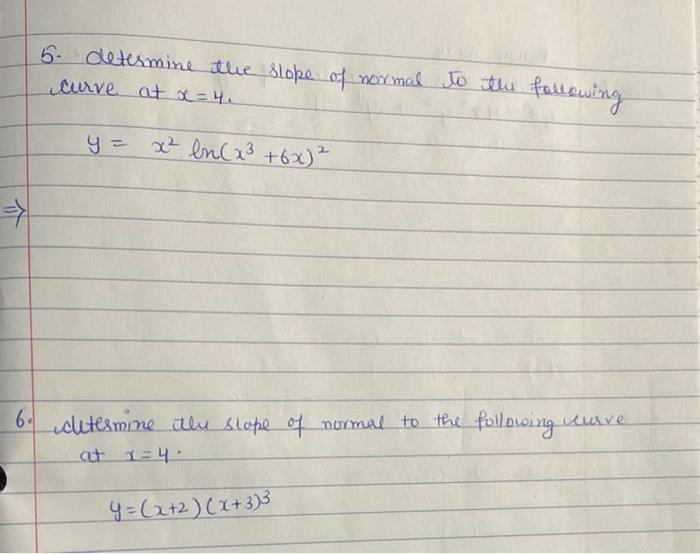 5. determine the slope of normal to the following
curve at x=4.
y = x² ln(x³ +6x)²
⇒
6. determine the slope of normal to the following curve
at x=4.
y=(x+2)(x+3)³